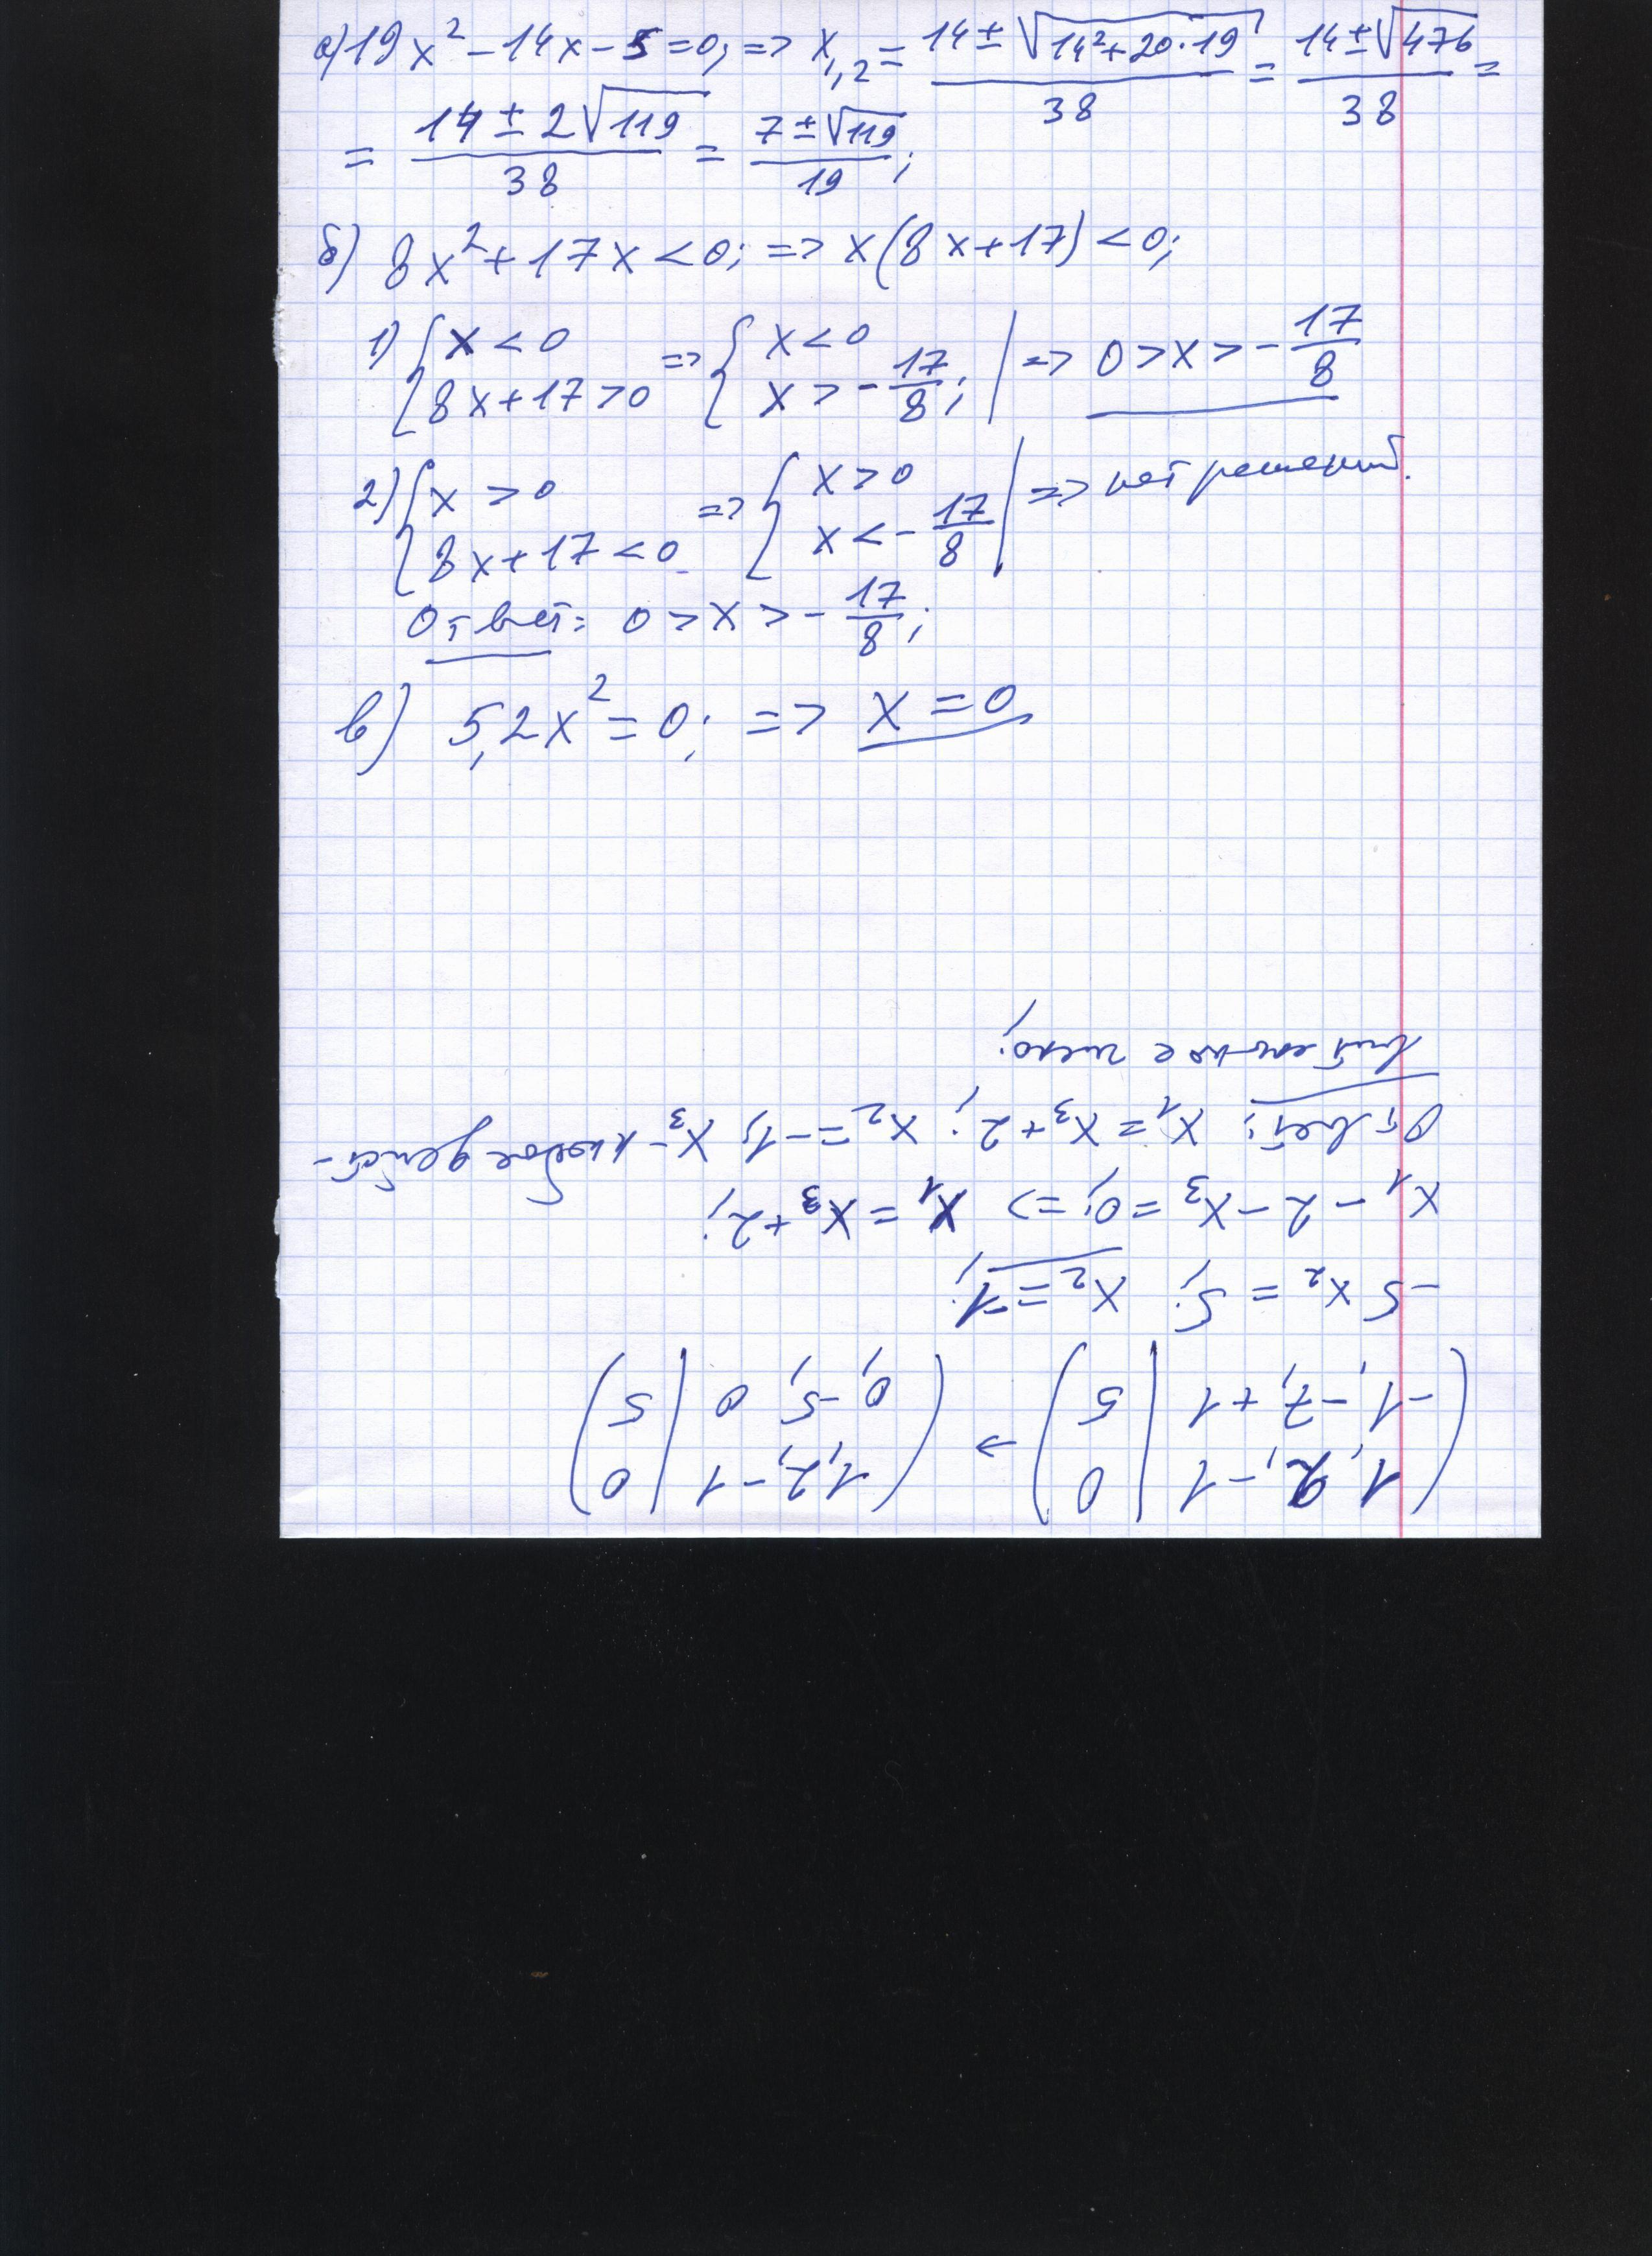 а) 19x² - 14x - 5 = 0; => x₁,₂ = (14 ± √(14² + 20·19))/38 = (14 ± √476)/38 =
= (14 ± 2√119)/38 = (7 ± √119)/19;
б) 8x² + 17x < 0; => x(8x + 17) < 0;
1) { x < 0 => { x < 0 | => 0 > x > - 17/8
{ 8x + 17 > 0 { x > - 17/8; |
2) { x > 0 => { x > 0 | => нет решений.
{ 8x + 17 < 0 { x < - 17/8 |
Ответ: 0 > x > - 17/8;
в) 5,2x² = 0; => x = 0
( 1, 2, -1 | 0 ) → ( 1, 2, -1 | 0 )
( -1, -7, +1 | 5 ) ( 0, -5, 0 | 5 )
-5x₂ = 5; x₂ = -1;
x₁ - 2 - x₃ = 0; => x₁ = x₃ + 2;
Ответ: x₁ = x₃ + 2; x₂ = -1; x₃ - любое дейст-
вительное число;